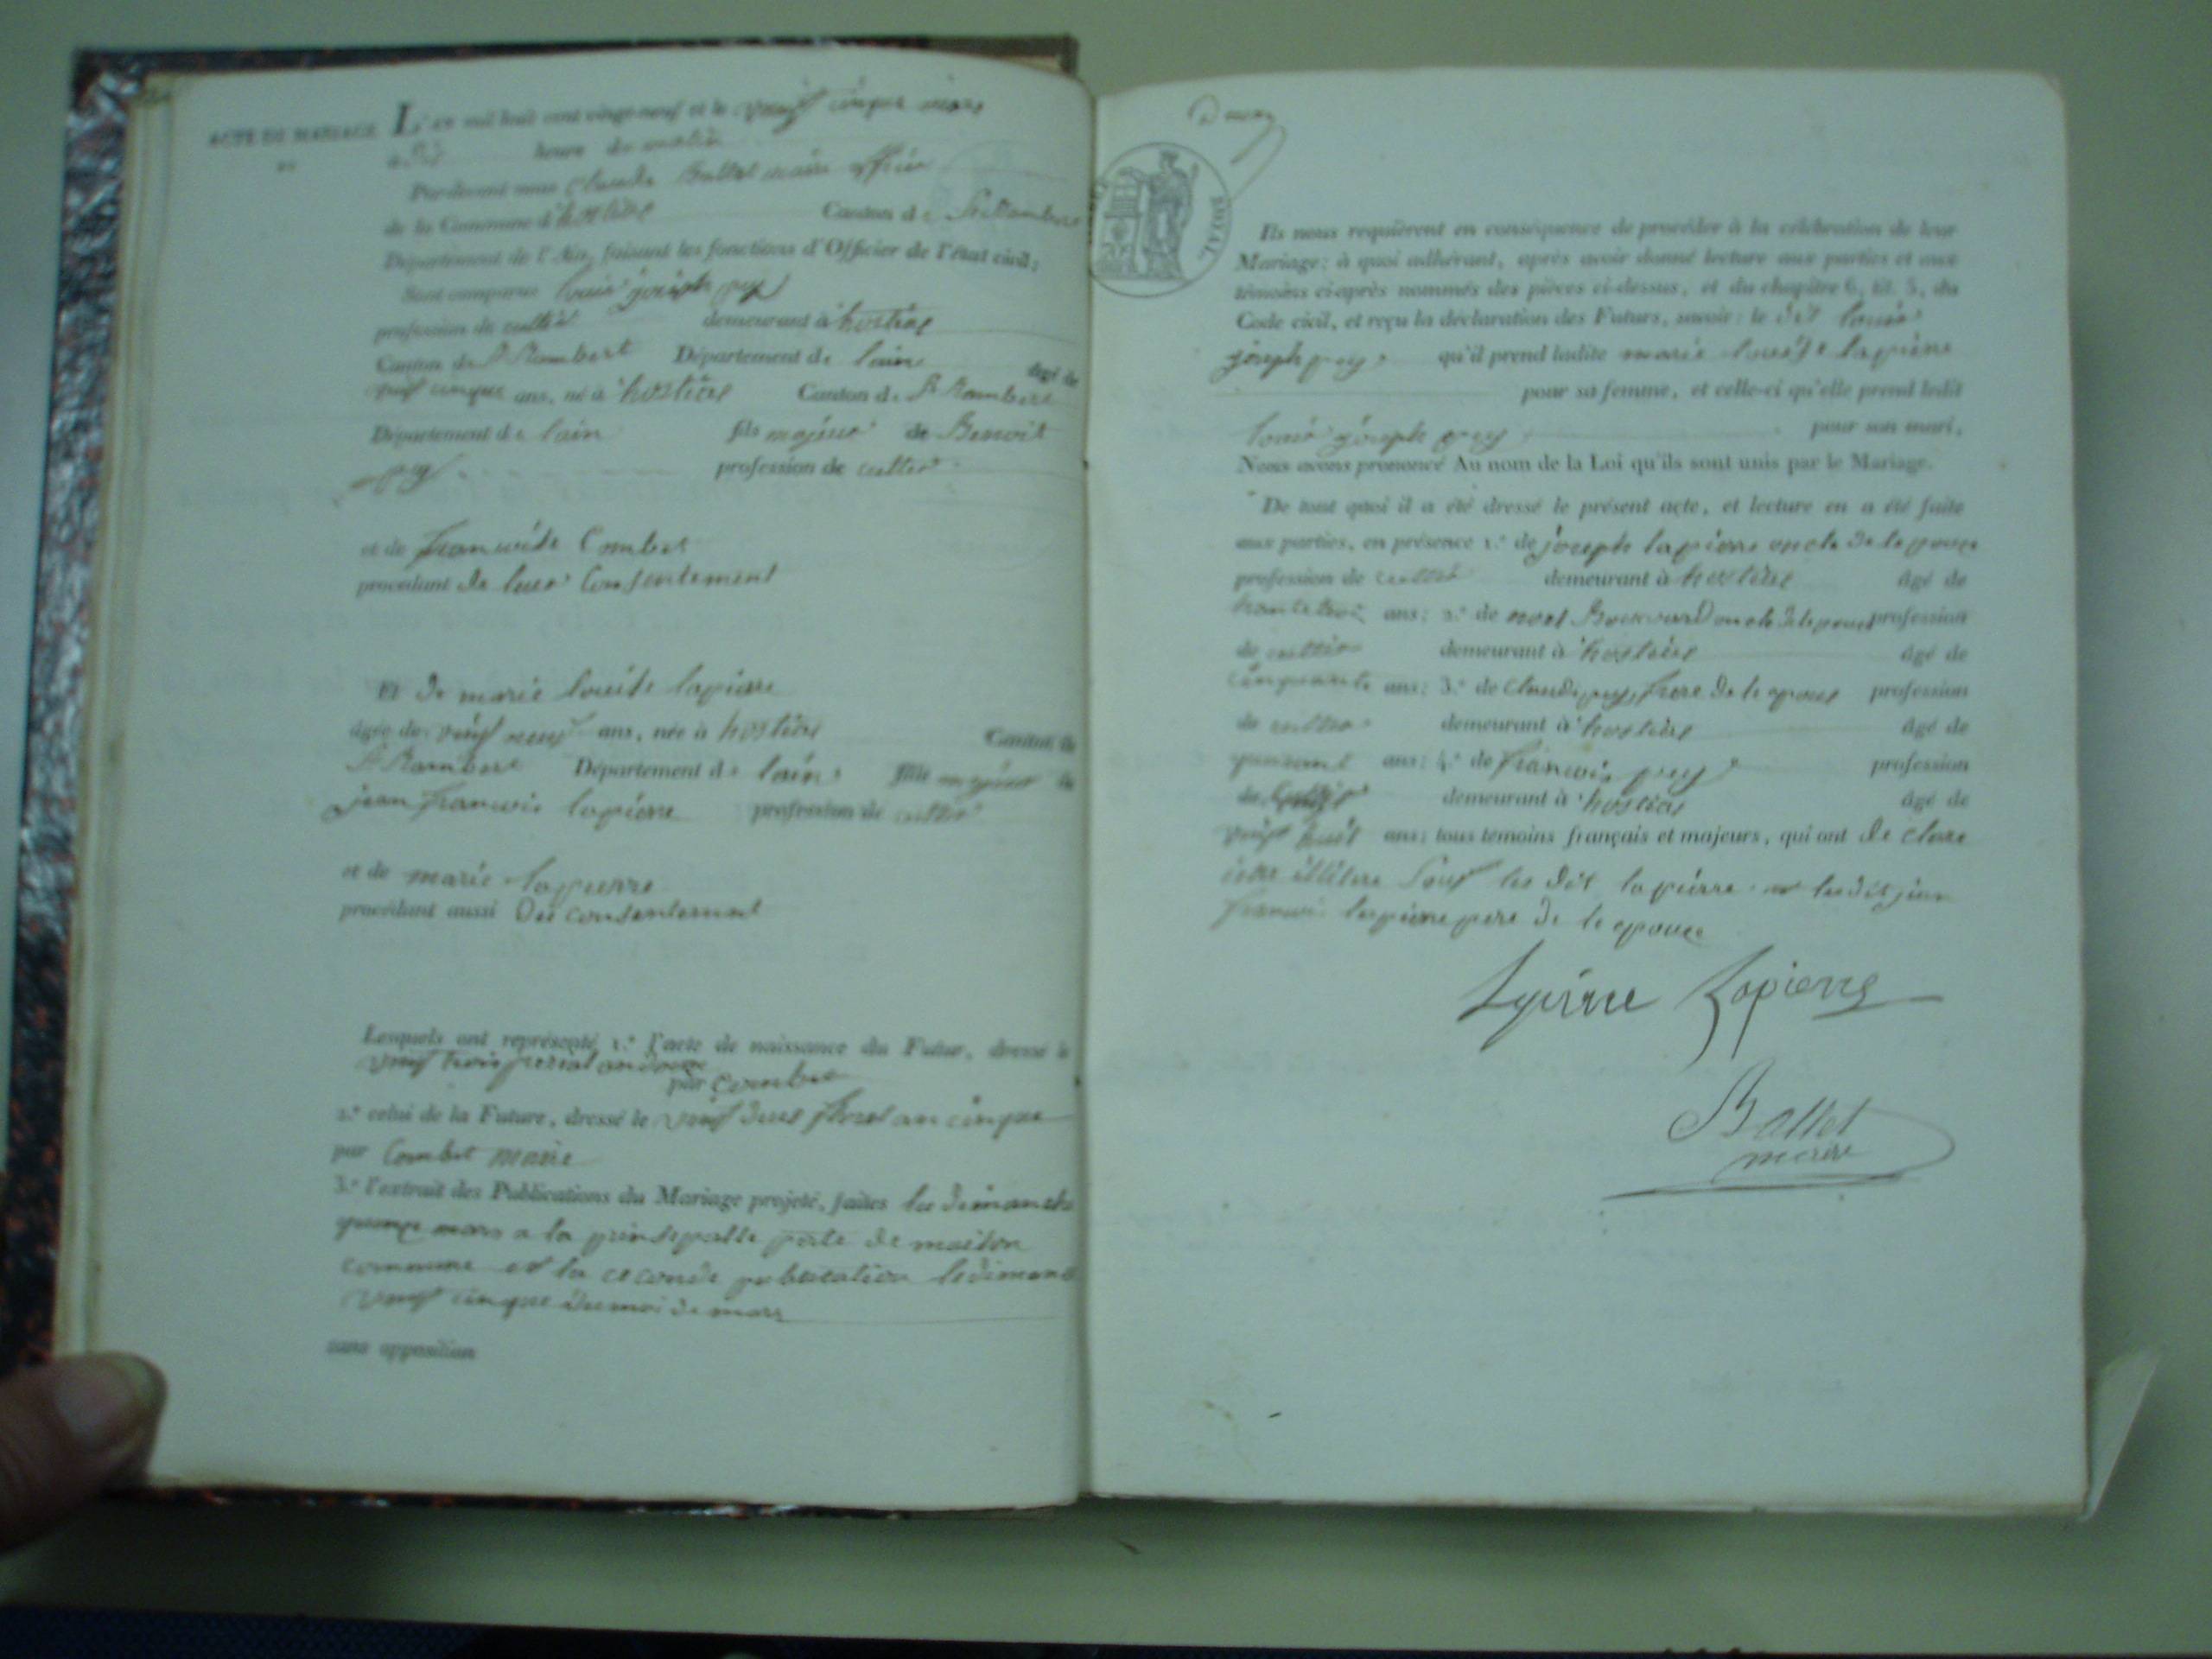 ACTE DE MARIAGE
L'an mil huit cent vingt-neuf et le vingt cinque mars
heure du matin
Pardevant nous Claude Ballet maire officier
de la Commune d'hostias Canton de St Rambert
Département de l'Ain, faisant les fonctions d'Officier de l'état civil;
Sont comparus louis joseph puy
profession de culteur demeurant à hostias
Canton de St Rambert Département de lain âgé de
vingt cinque ans, né à hostias Canton de St Rambert
Département de lain fils majeur de Benoit
puy profession de culteur
et de francoise Combet
procédant de leur Consentement
Et de marie louise lapierre
âgée de vingt neuf ans, née à hostias Canton de
St Rambert Département de lain fille majeur de
jean francois lapierre profession de culteur
et de marie lapierre
procédant aussi du consentement
Lesquels ont représenté, 1.º l'acte de naissance du Futur, dressé le
vingt trois prerial an
par Combet
2.º celui de la Future, dressé le vingt deux floreal an cinque
par Combet maire
3.º l'extrait des Publications du Mariage projeté, faites le dimanche
quinze mars a la principalle porte de maison
commune et la ceconde publication ledimanc
vingt cinque du moi de mars
sans opposition
ROYAL
Ils nous requièrent en conséquence de procéder à la célébration de leur
Mariage; à quoi adhérant, après avoir donné lecture aux parties et aux
témoins ci-après nommés des pièces ci-dessus, et du chapitre 6, tit. 5, du
Code civil, et reçu la déclaration des Futurs, savoir: le dit louis
joseph puy qu'il prend ladite marie louise lapierre
pour sa femme, et celle-ci qu'elle prend ledit
louis joseph puy pour son mari,
Nous avons prononcé Au nom de la Loi qu'ils sont unis par le Mariage.
De tout quoi il a été dressé le présent acte, et lecture en a été faite
aux parties, en présence 1.º de joseph lapierre oncle de le pouce
profession de culteur demeurant à hostias âgé de
trante trois ans; 2.º de noel oncle de le pouce profession
de culteur demeurant à hostias âgé de
cinquante ans; 3.º de Claude puy frere de le epoux profession
de culteur demeurant à hostias âgé de
quarant ans; 4.º de francois puy profession
de demeurant à hostias âgé de
vingt huit ans; tous témoins français et majeurs, qui ont de clare
etre illitere Souf les dit lapierre et ledit jean
francois lapierre pere de le epouce
Lapierre Lapierre
Ballet
maire